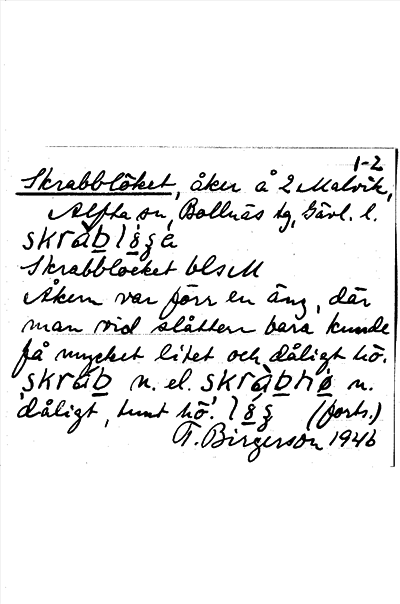 1-2
Skrabblöket, åker å 2 Malvik,
Alfta sn, Bollnäs tg, Gävl. l.
skràb lǫ̈ʒa
Skrabblöcket blsM
Åkern var förr en äng, där
man vid slåttern bara kunde
få mycket litet och dåligt hö.
skráb n. el. skràbhø n.
'dåligt, tunt hö'. (forts.)
T. Birgerson 1946